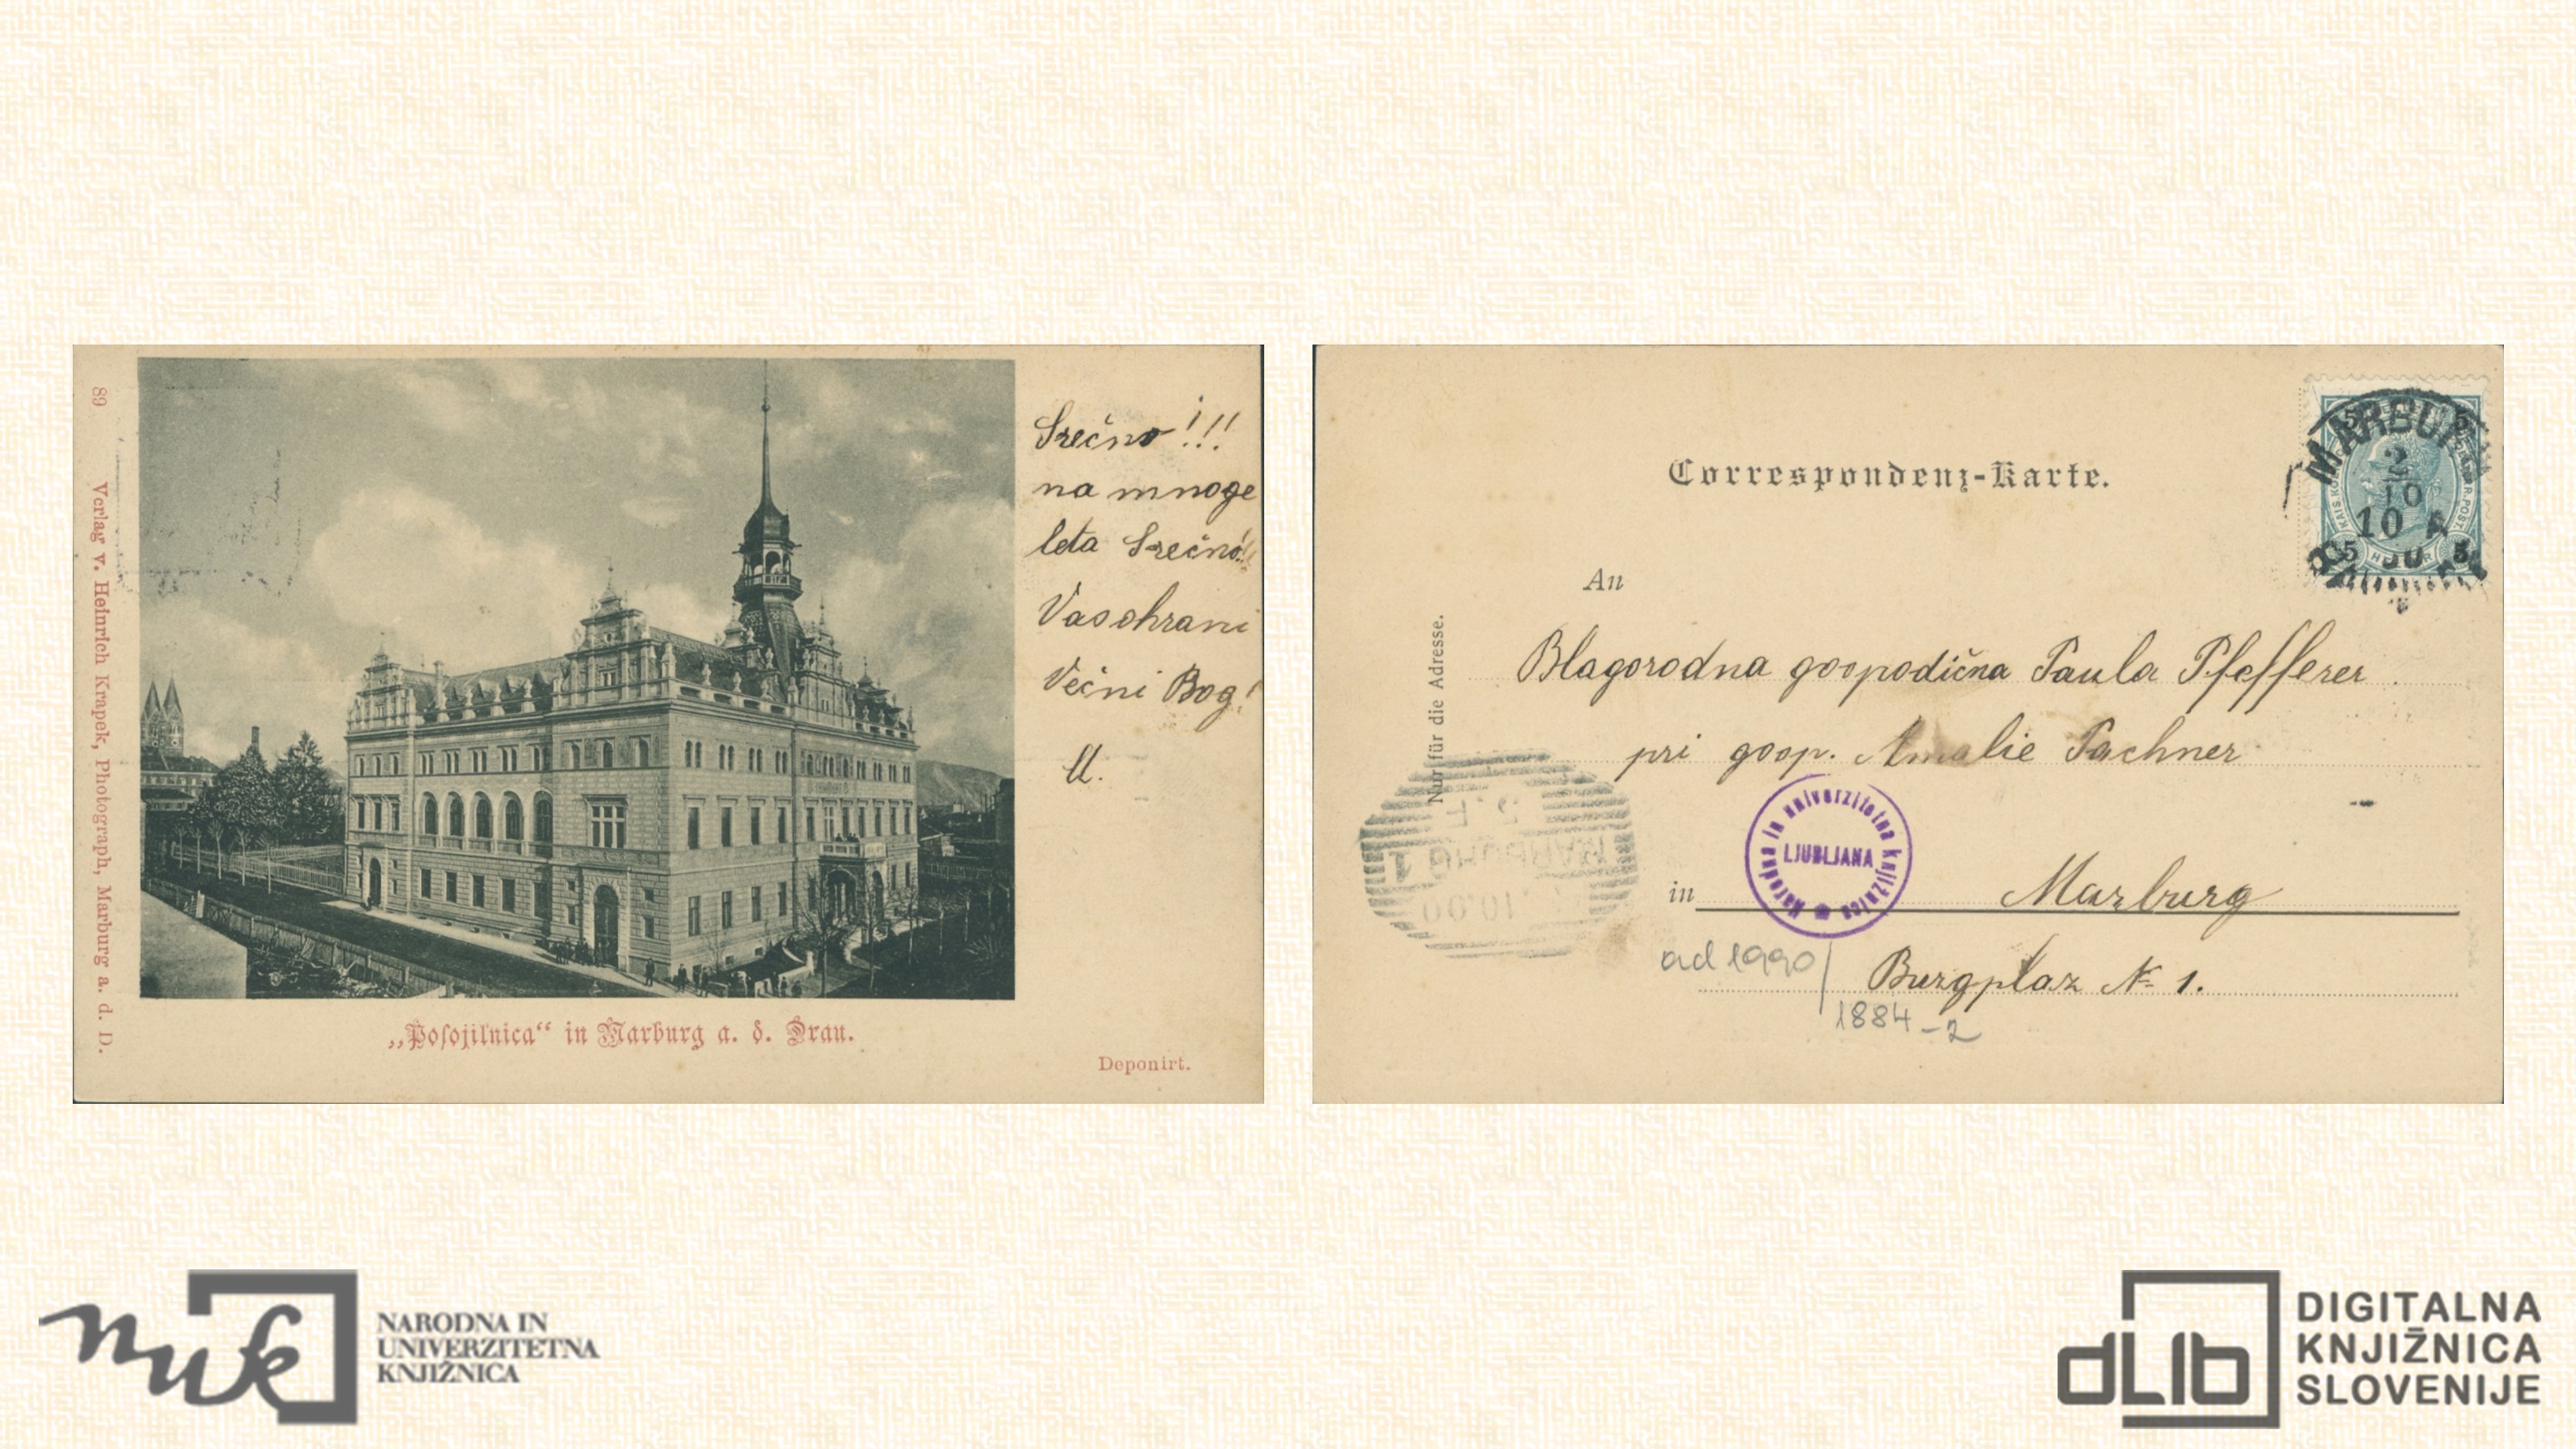 89
Verlag v. Heinrich Krapek, Photograph, Marburg a. d. D.
Srečno!!!
na mnoge
leta Srečno!!
Vas ohrani
Večni Bog!
U.
„Posojilnica“ in Marburg a. d. Drau.
Deponirt.
Correspondenz-Karte.
MARBURG
2
10
10
An
Nur für die Adresse.
Blagorodna gospodična Paula Pfefferer
pri gosp. Amalie Pachner
MARBURG 1
10.00
Narodna in univerzitetna knjižnica
LJUBLJANA
in Marburg
ad 1990/
1884-2
Burgplaz № 1.
nuk
NARODNA IN
UNIVERZITETNA
KNJIŽNICA
dLib
DIGITALNA
KNJIŽNICA
SLOVENIJE